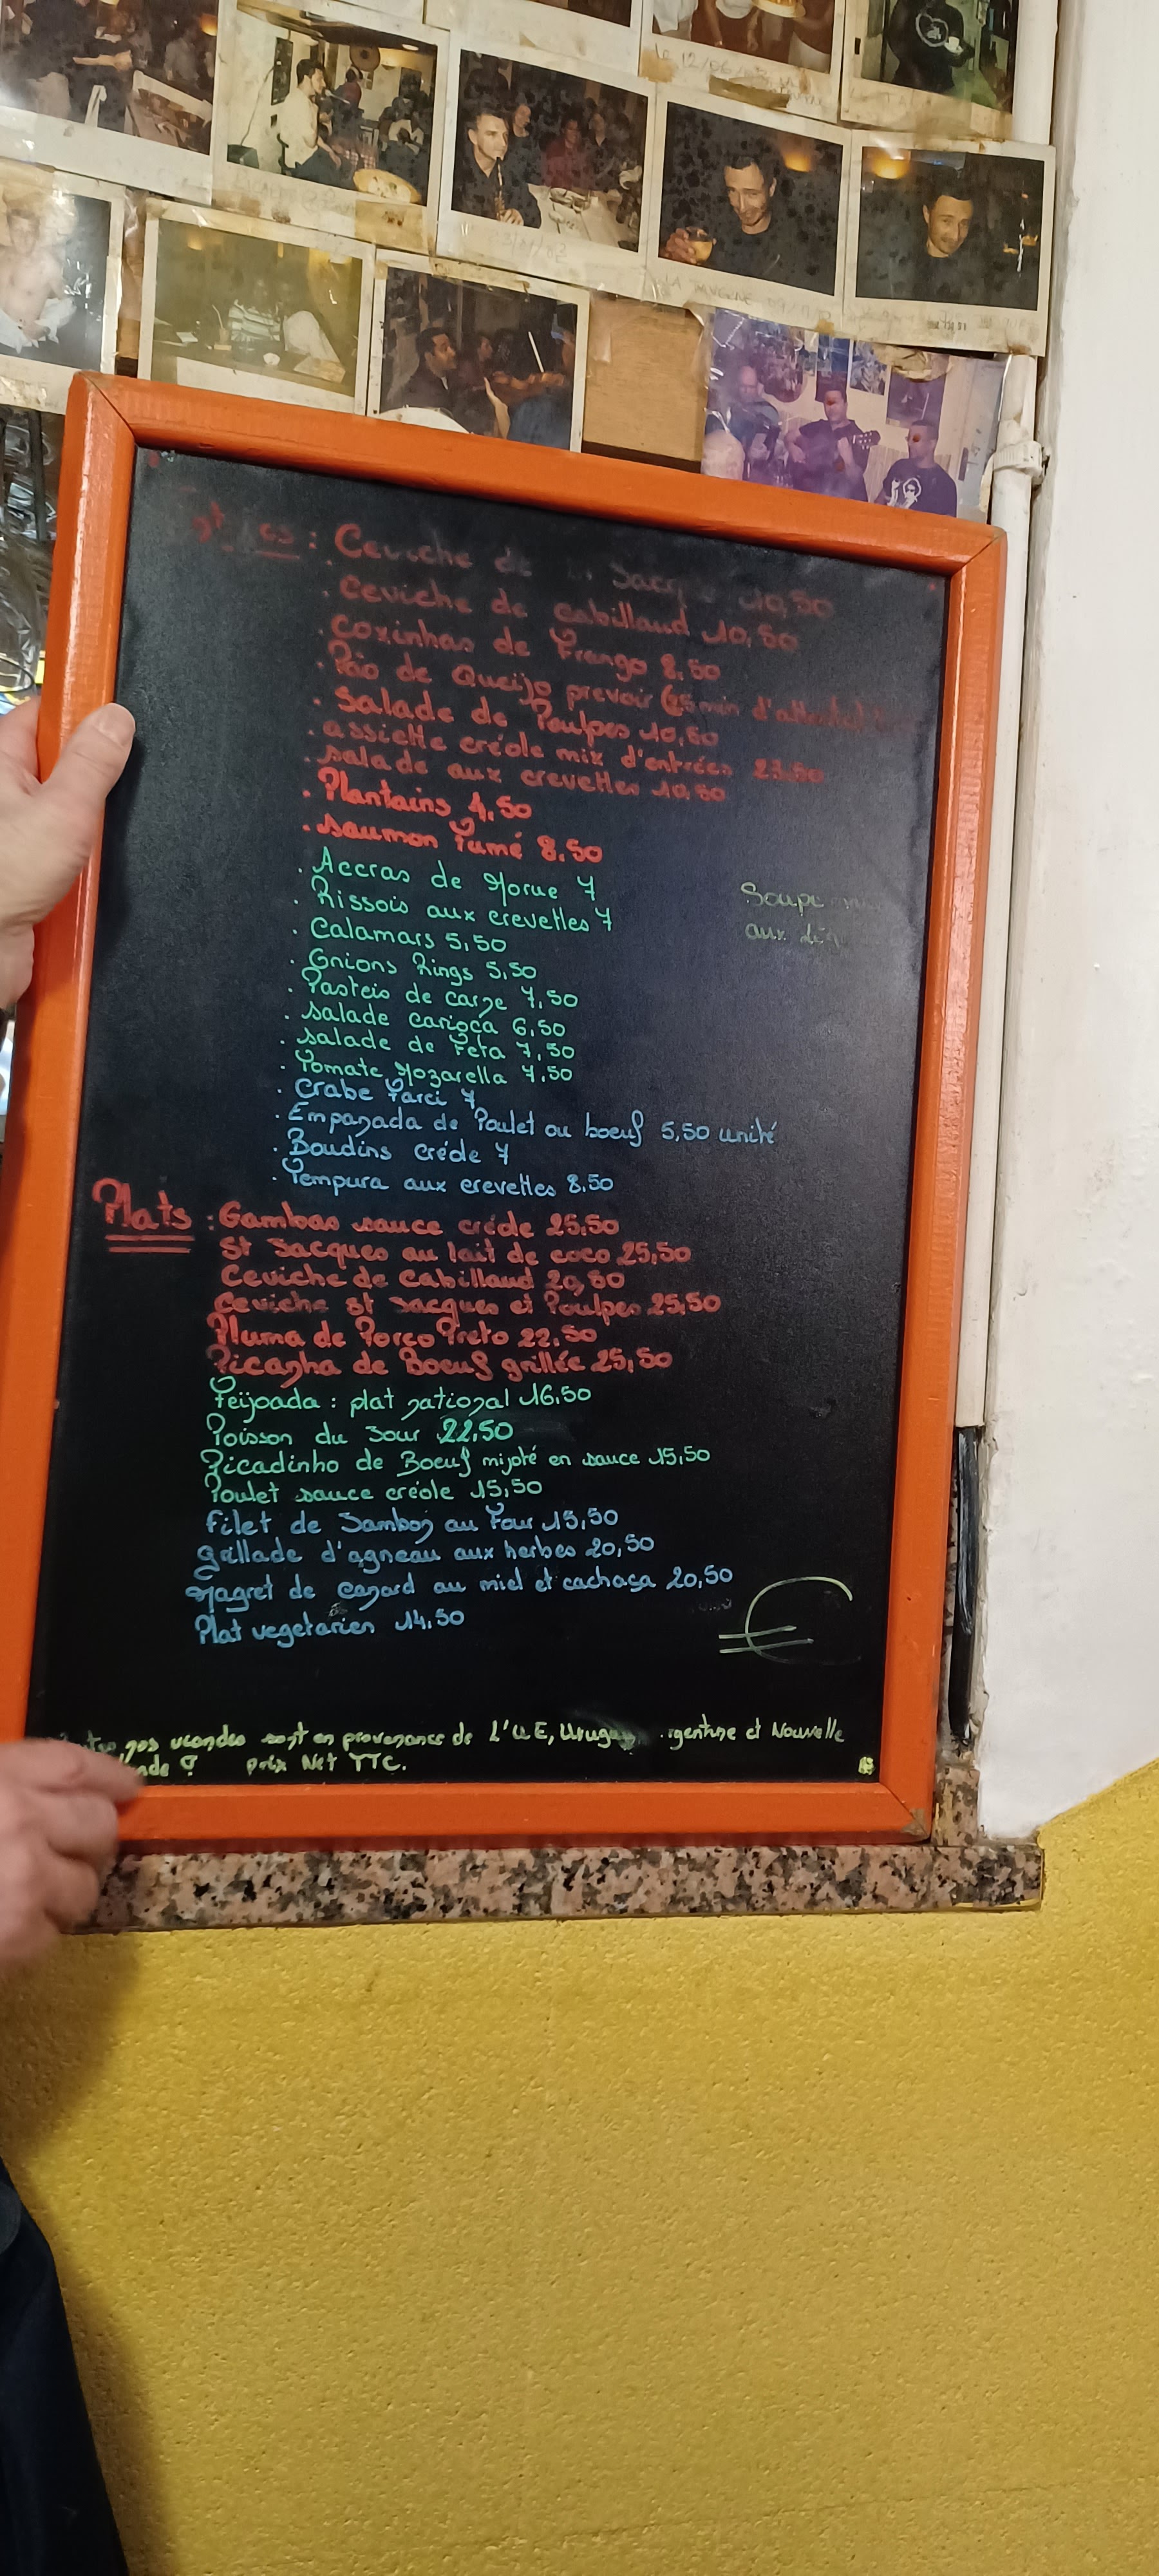 Ceviche de Jacq 10,50
. Ceviche de cabillaud 10,50
. Coxinhas de Frango 8.50
. Pão de Queijo prevoir (25 min d'attente)
. Salade de Poulpes 10,50
. assiette créole mix d'entrées 23.50
. salade aux crevettes 10.50
. Plantains 4,50
. saumon fumé 8.50
. Accras de Morue 7
. Rissois aux crevettes 7
. Calamars 5,50
. Onions Rings 5,50
. Pasteis de carne 7,50
. salade carioca 6,50
. salade de Feta 7,50
. Tomate Mozarella 7,50
. Crabe Farci 7
. Empanada de Poulet ou boeuf 5,50 unité
. Boudins créole 7
. Tempura aux crevettes 8.50
Soupe
aux
Plats : Gambas sauce créole 25.50
St Jacques au lait de coco 25,50
Ceviche de Cabillaud 20,50
Ceviche St Jacques et Poulpes 25.50
Pluma de Porco Preto 22.50
Picanha de Boeuf grillée 25,50
Feijoada : plat national 16.50
Poisson du Jour 22.50
Picadinho de Boeuf mijoté en sauce 15,50
Poulet sauce créole 15,50
Filet de Jambon au Four 15,50
grillade d'agneau aux herbes 20,50
Magret de canard au miel et cachaça 20,50
Plat vegetarien 14.50
€
nos viandes sont en provenance de L'UE, Uruguay, rgentine et Nouvelle
nde prix Net TTC.